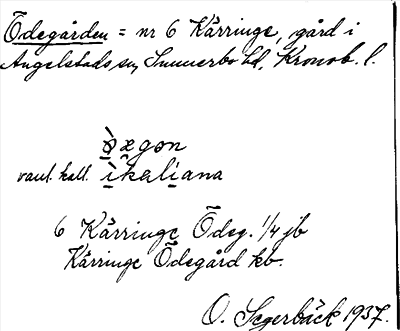 Ödegården = nr 6 Kårringe, gård i
Angelstads sn, Sunnerbo hd, Kronob. l.
vanl. kall. ìkaliana
6 Kårringe Ödeg. 1/4 jb
Kårringe Ödegård kb.
O. Segerbäck 1937.